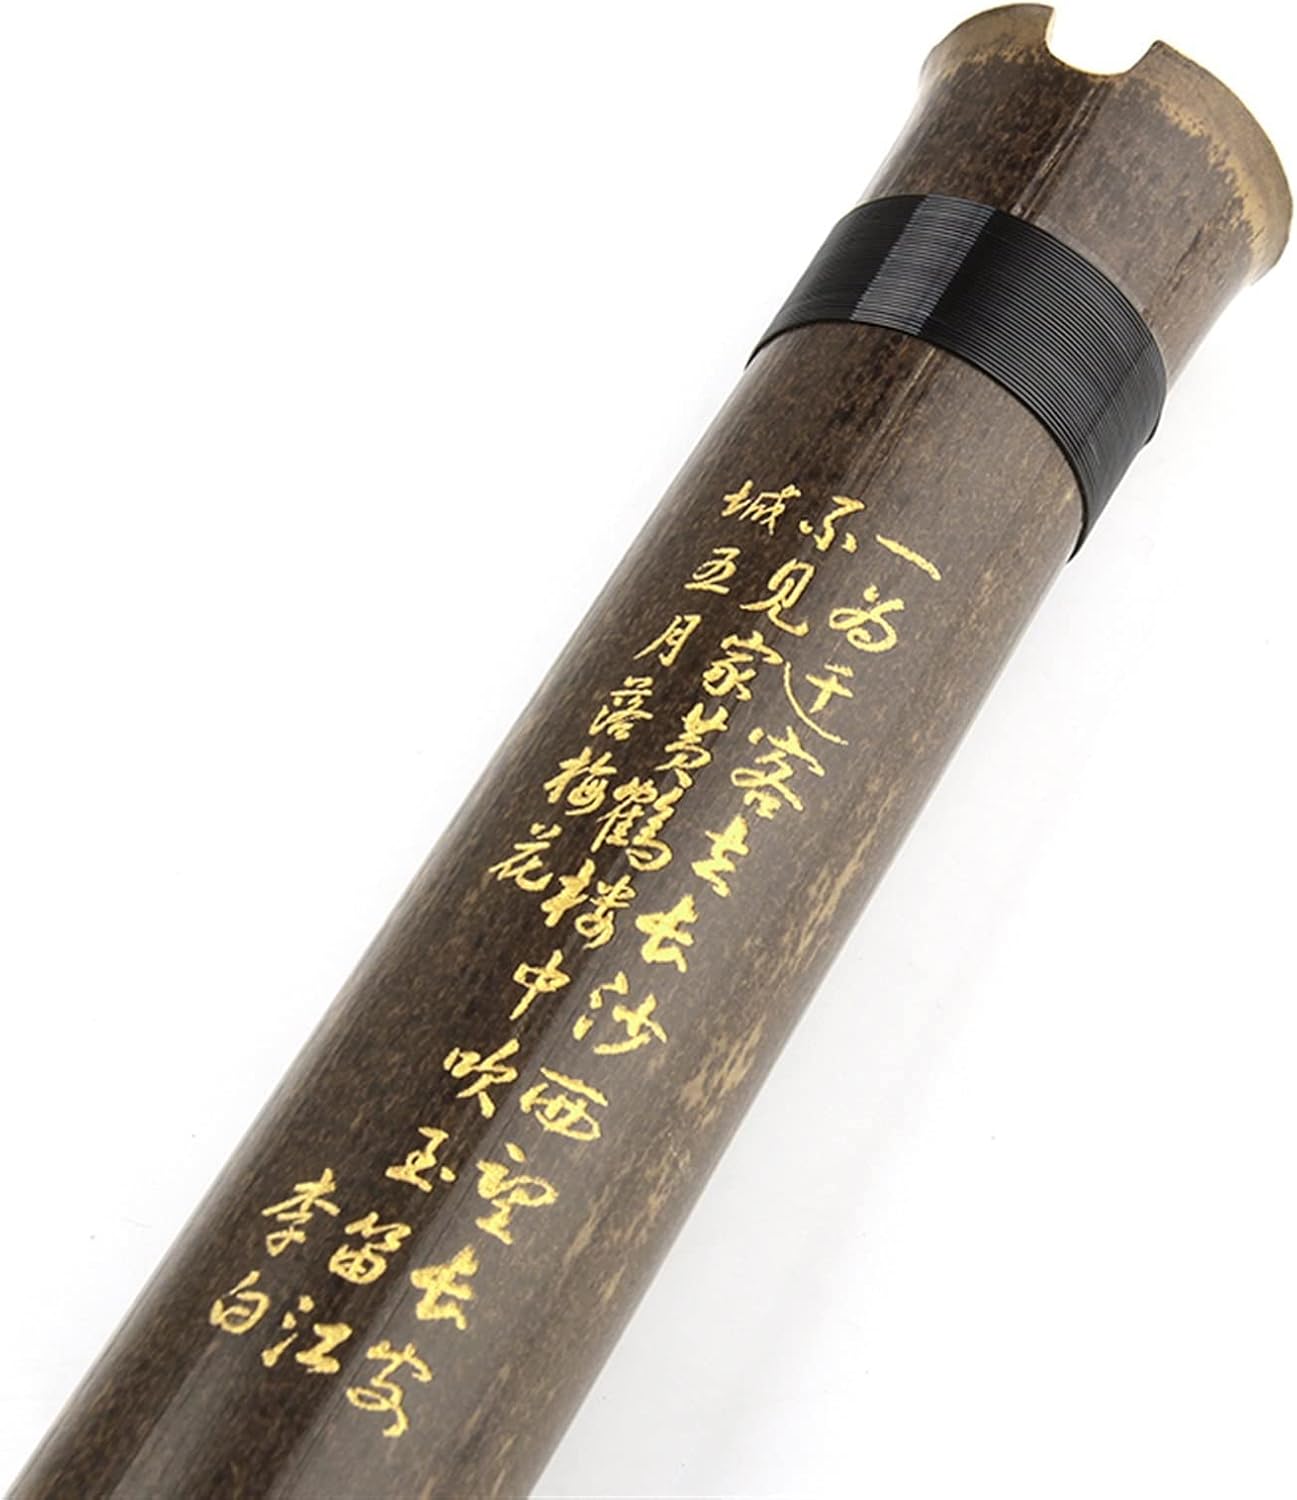 一为迁客去长沙西望长安
不见家黄鹤楼中吹玉笛江
城五月落梅花
李白